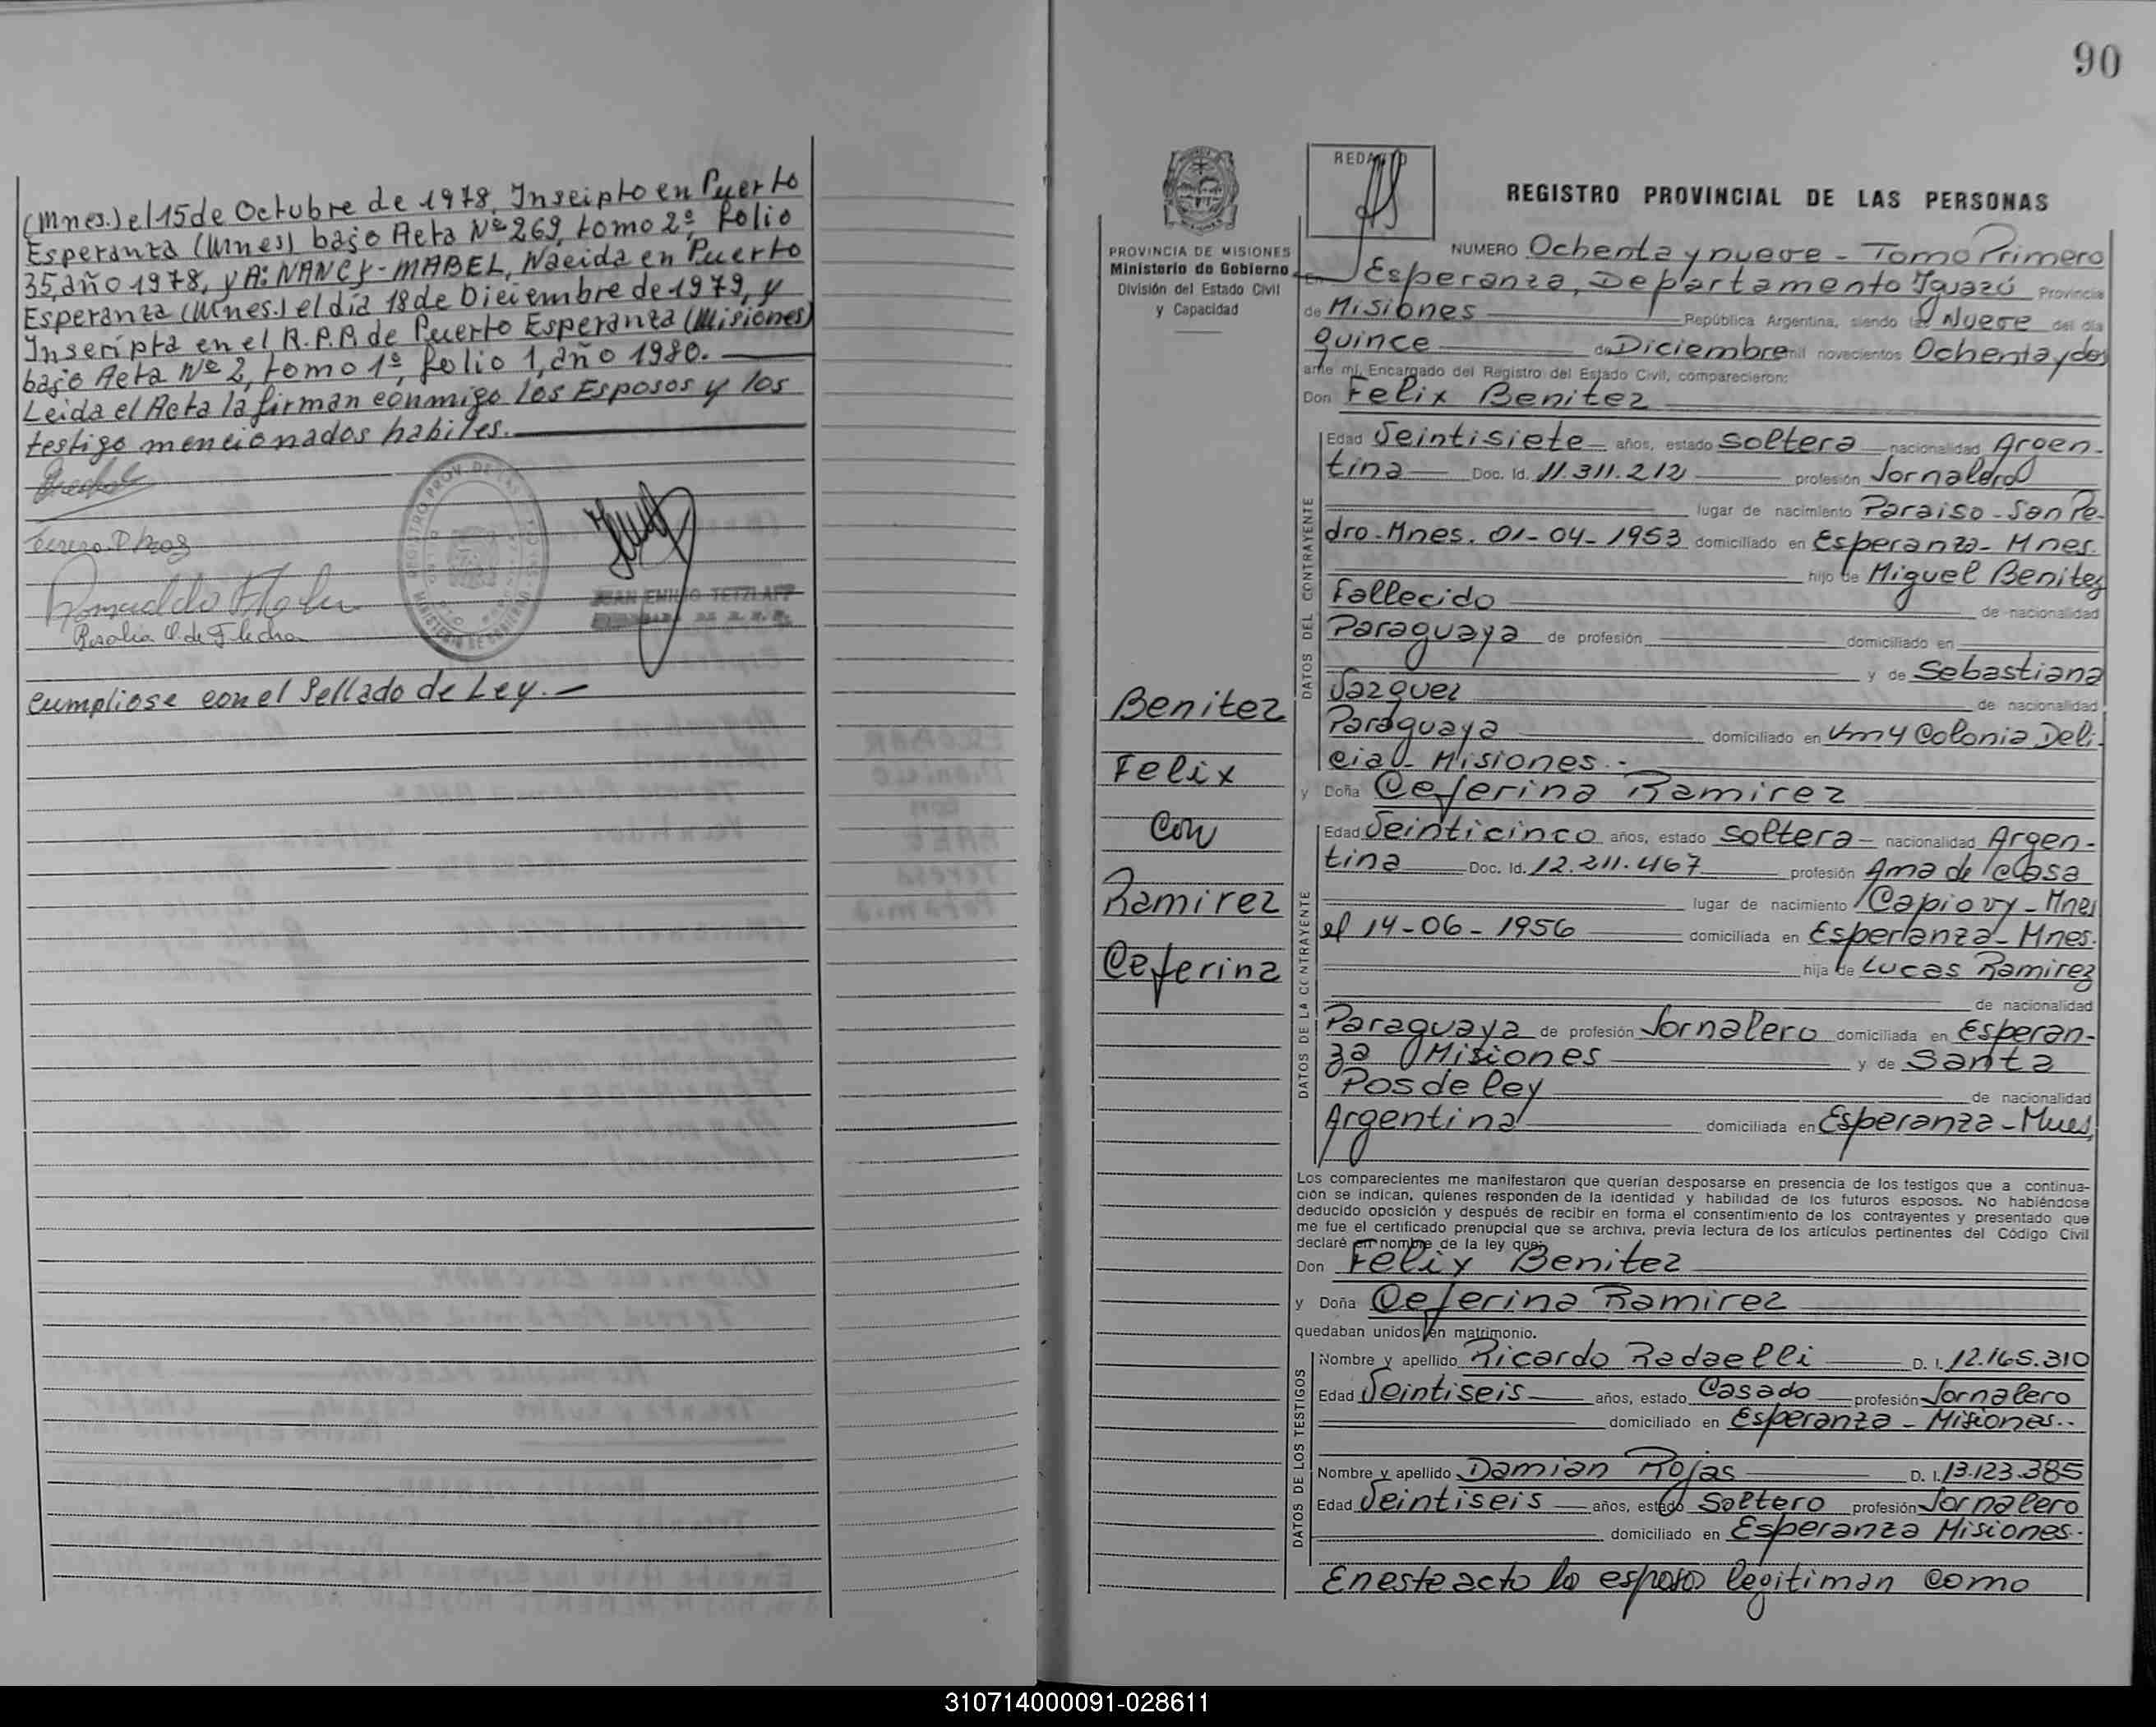 (Mnes.) el 15 de Octubre de 1978, Inscipto en Puerto
Esperanza (Mnes) bajo Acta Nº 269, tomo 2º, folio
35, año 1978, y A: NANCY-MABEL, Nacida en Puerto
Esperanza (Mnes.) el día 18 de Diciembre de 1979, y
Inscripta en el R.P.P. de Puerto Esperanza (Misiones)
bajo Acta Nº 2, tomo 1º, folio 1, año 1980.
Leida el Acta la firman conmigo los Esposos y los
testigo mencionados habiles.
Rosalia O. de Flecha
JUAN EMILIO TETZLAFF
Cumpliose con el Sellado de Ley.-
90
REDACTO
REGISTRO PROVINCIAL DE LAS PERSONAS
PROVINCIA DE MISIONES
Ministerio de Gobierno
División del Estado Civil
y Capacidad
NUMERO Ochenta y nueve - Tomo Primero
En Esperanza, Departamento Iguazú Provincia
de Misiones República Argentina, siendo las Nueve del día
quince de Diciembre mil novecientos Ochenta y dos
ante mí, Encargado del Registro del Estado Civil, comparecieron:
Don Felix Benitez
DATOS DEL CONTRAYENTE
Edad Veintisiete años, estado soltera nacionalidad Argen-
tina Doc. Id. 11.311.212 profesión Jornalero
lugar de nacimiento Paraiso - San Pe-
dro - Mnes. 01-04-1953 domiciliado en Esperanza - Mnes.
hijo de Miguel Benitez
Fallecido de nacionalidad
Paraguaya de profesión domiciliado en
y de Sebastiana
Vazquez de nacionalidad
Paraguaya domiciliado en Km 4 Colonia Deli-
cia - Misiones.-
y Doña Ceferina Ramirez
Benitez
Felix
Con
Ramirez
Ceferina
DATOS DE LA CONTRAYENTE
Edad Veinticinco años, estado soltera - nacionalidad Argen-
tina Doc. Id. 12.211.467 profesión Ama de Casa
lugar de nacimiento Capiovy - Mnes
el 14-06-1956 domiciliada en Esperanza - Mnes.
hija de Lucas Ramirez
de nacionalidad
Paraguaya de profesión Jornalero domiciliada en Esperan-
za Misiones y de Santa
Posdeley de nacionalidad
Argentina domiciliada en Esperanza - Mnes
Los comparecientes me manifestaron que querían desposarse en presencia de los testigos que a continua-
ción se indican, quienes responden de la identidad y habilidad de los futuros esposos. No habiéndose
deducido oposición y después de recibir en forma el consentimiento de los contrayentes y presentado que
me fue el certificado prenupcial que se archiva, previa lectura de los artículos pertinentes del Código Civil
declaré en nombre de la ley que:
Don Felix Benitez
y Doña Ceferina Ramirez
quedaban unidos en matrimonio.
DATOS DE LOS TESTIGOS
Nombre y apellido Ricardo Radaelli D. I. 12.165.310
Edad Veintiseis años, estado Casado profesión Jornalero
domiciliado en Esperanza - Misiones.-
Nombre y apellido Damian Rojas D. I. 13.123.385
Edad Veintiseis años, estado Soltero profesión Jornalero
domiciliado en Esperanza Misiones.
En este acto lo esposo legitiman como
310714000091-028611